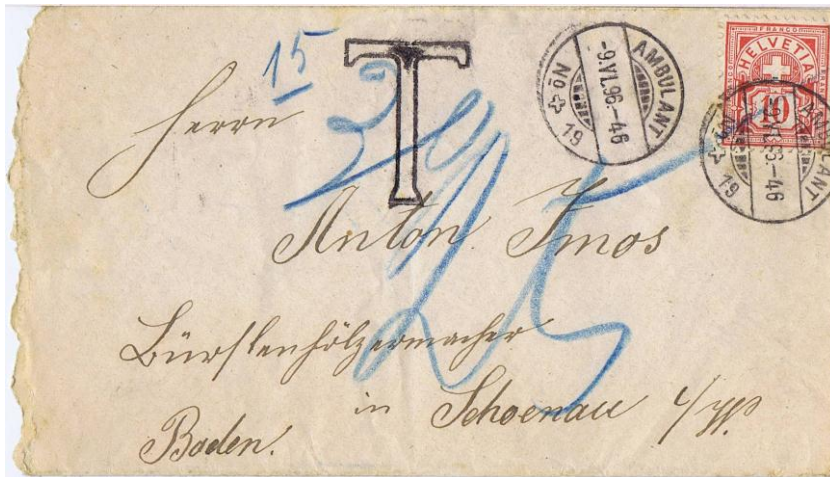 15
T
30
25
AMBULANT
-9.VI.96.-46
No 19
FRANCO
HELVETIA
10
AMBULANT
-9.VI.96.-46
19
Herrn
Anton Imos
Bürstenhölzermacher
in Schoenau i/W.
Baden.